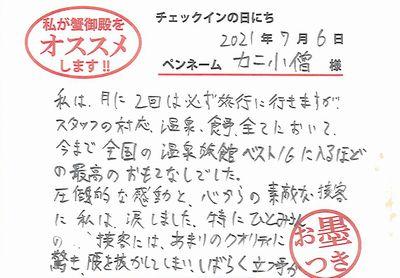 私が蟹御殿を
オススメ
します!!
チェックインの日にち
2021年7月6日
ペンネーム カニ小僧 様
私は、月に2回は必ず旅行に行きますが
スタッフの対応、温泉、食事、全てにおいて、
今まで全国の温泉旅館ベスト16に入るほど
の最高のおもてなしでした。
圧倒的な感動と、心からの素敵な接客
に私は、涙しました。特にひとみさん
の、接客には、あまりのクオリティに
驚き、腰を抜かしてしまい、しばらく立つ事が
お墨
つき